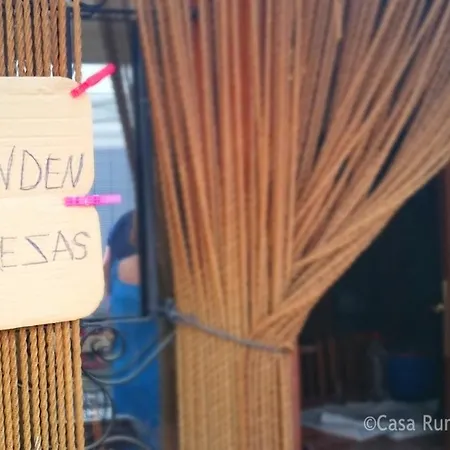 NDEN
ESAS
©Casa Rur